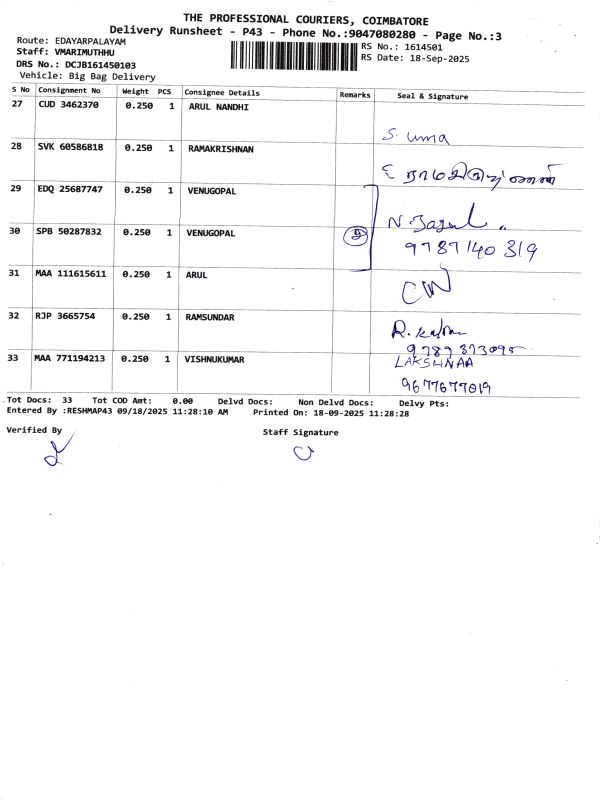 THE PROFESSIONAL COURIERS, COIMBATORE
Delivery Runsheet - P43 - Phone No.:9047080280 - Page No.:3
Route: EDAYARPALAYAM
RS No.: 1614501
Staff: VMARIMUTHHU
RS Date: 18-Sep-2025
DRS No.: DCJB161450103
Vehicle: Big Bag Delivery
S No Consignment No Weight PCS Consignee Details Remarks Seal & Signature
27 CUD 3462370 0.250 1 ARUL NANDHI
S. uma
28 SVK 60586818 0.250 1 RAMAKRISHNAN
29 EDQ 25687747 0.250 1 VENUGOPAL
30 SPB 50287832 0.250 1 VENUGOPAL
9787140319
31 MAA 111615611 0.250 1 ARUL
32 RJP 3665754 0.250 1 RAMSUNDAR
33 MAA 771194213 0.250 1 VISHNUKUMAR
9677677819
Tot Docs: 33 Tot COD Amt: 0.00 Delvd Docs: Non Delvd Docs: Delvy Pts:
Entered By :RESHMAP43 09/18/2025 11:28:10 AM Printed On: 18-09-2025 11:28:28
Verified By
Staff Signature